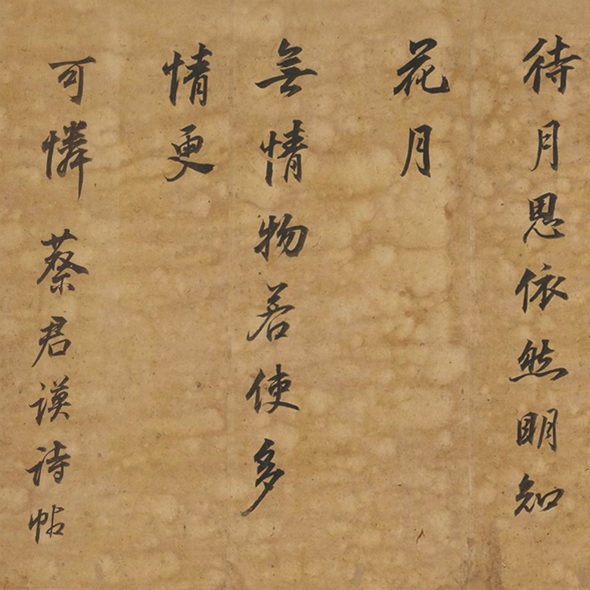 待月恩依然明知
花月
無情物若使多
情更
可憐 蔡君謨詩帖